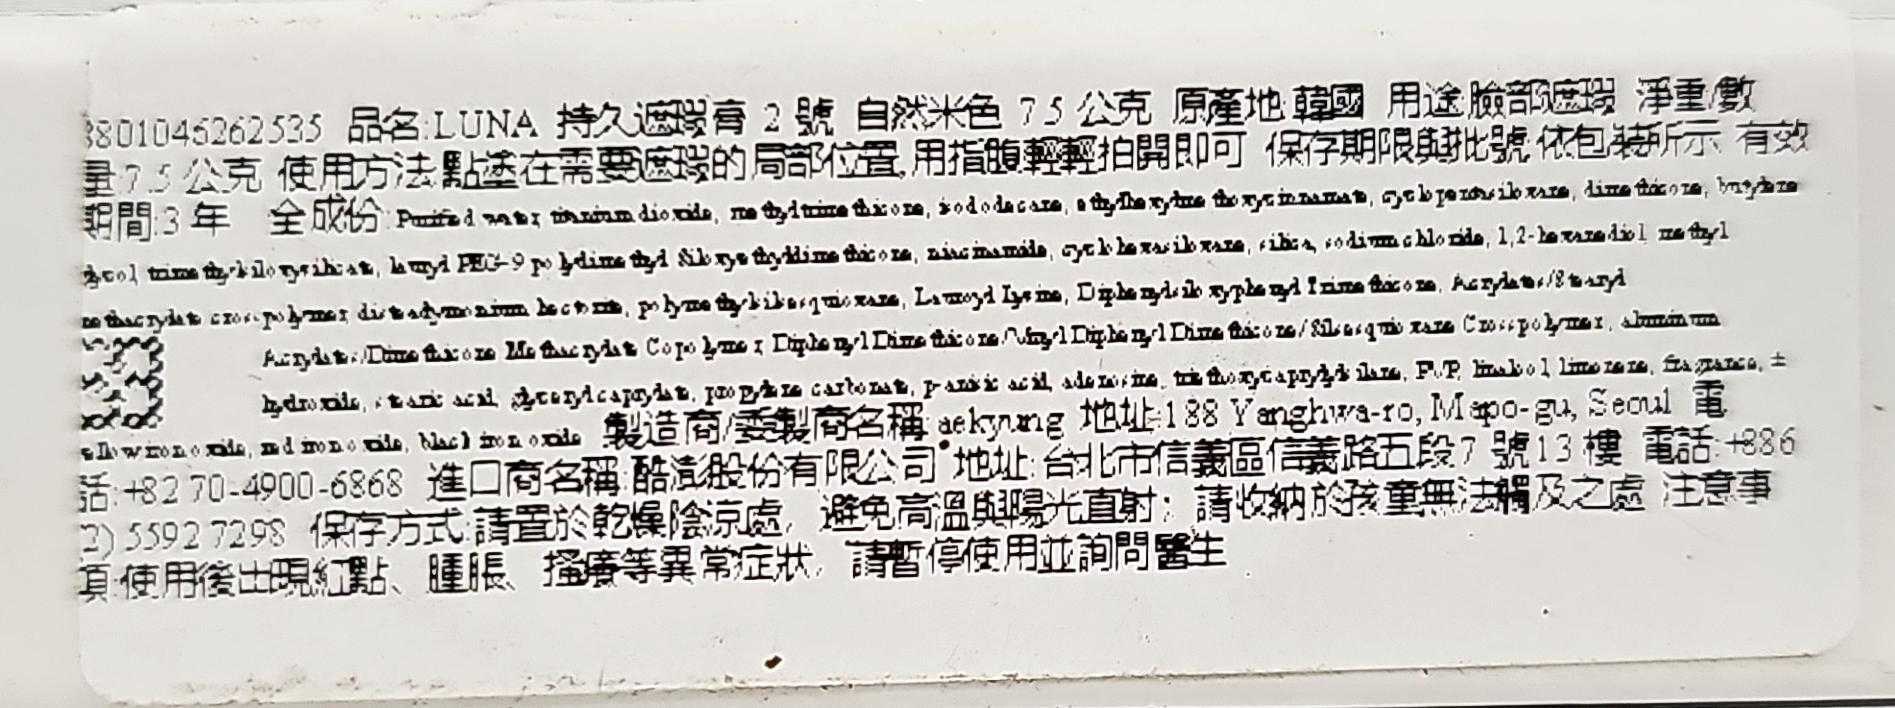 8801046262535 品名:LUNA 持久遮瑕膏 2 號 自然米色 7.5 公克 原產地:韓國 用途:臉部遮瑕 淨重/數
量:7.5 公克 使用方法:點塗在需要遮瑕的局部位置,用指腹輕輕拍開即可 保存期限與批號:依包裝所示 有效
期間:3 年 全成份:Purified water, titanium dioxide, methyl trimethicone, isododecane, ethylhexyl methoxycinnamate, cyclopentasiloxane, dimethicone, butylene
glycol, trimethylsiloxysilicate, lauryl PEG-9 polydimethyl Siloxyethyl dimethicone, niacinamide, cyclohexasiloxane, silica, sodium chloride, 1,2-hexanediol, methyl
methacrylate crosspolymer, disteardymonium hectorite, polymethylsilsesquioxane, Lauroyl Lysine, Diphenylsiloxyphenyl Trimethicone, Acrylates/Stearyl
Acrylate/Dimethicone Methacrylate Copolymer, Diphenyl Dimethicone/Vinyl Diphenyl Dimethicone/Silsesquioxane Crosspolymer, aluminum
hydroxide, stearic acid, glyceryl caprylate, propylene carbonate, p-anisic acid, adenosine, triethoxycaprylylsilane, PVP, linalool, limonene, fragrance, ±
yellow iron oxide, red iron oxide, black iron oxide 製造商/委製商名稱:aekyung 地址:188 Yanghwa-ro, Mapo-gu, Seoul 電
話:+82 70-4900-6868 進口商名稱:酷澎股份有限公司 地址:台北市信義區信義路五段7 號13 樓 電話:+886
2) 5592 7298 保存方式:請置於乾燥陰涼處, 避免高溫與陽光直射; 請收納於孩童無法觸及之處 注意事
項:使用後出現紅點、腫脹、搔癢等異常症狀, 請暫停使用並詢問醫生